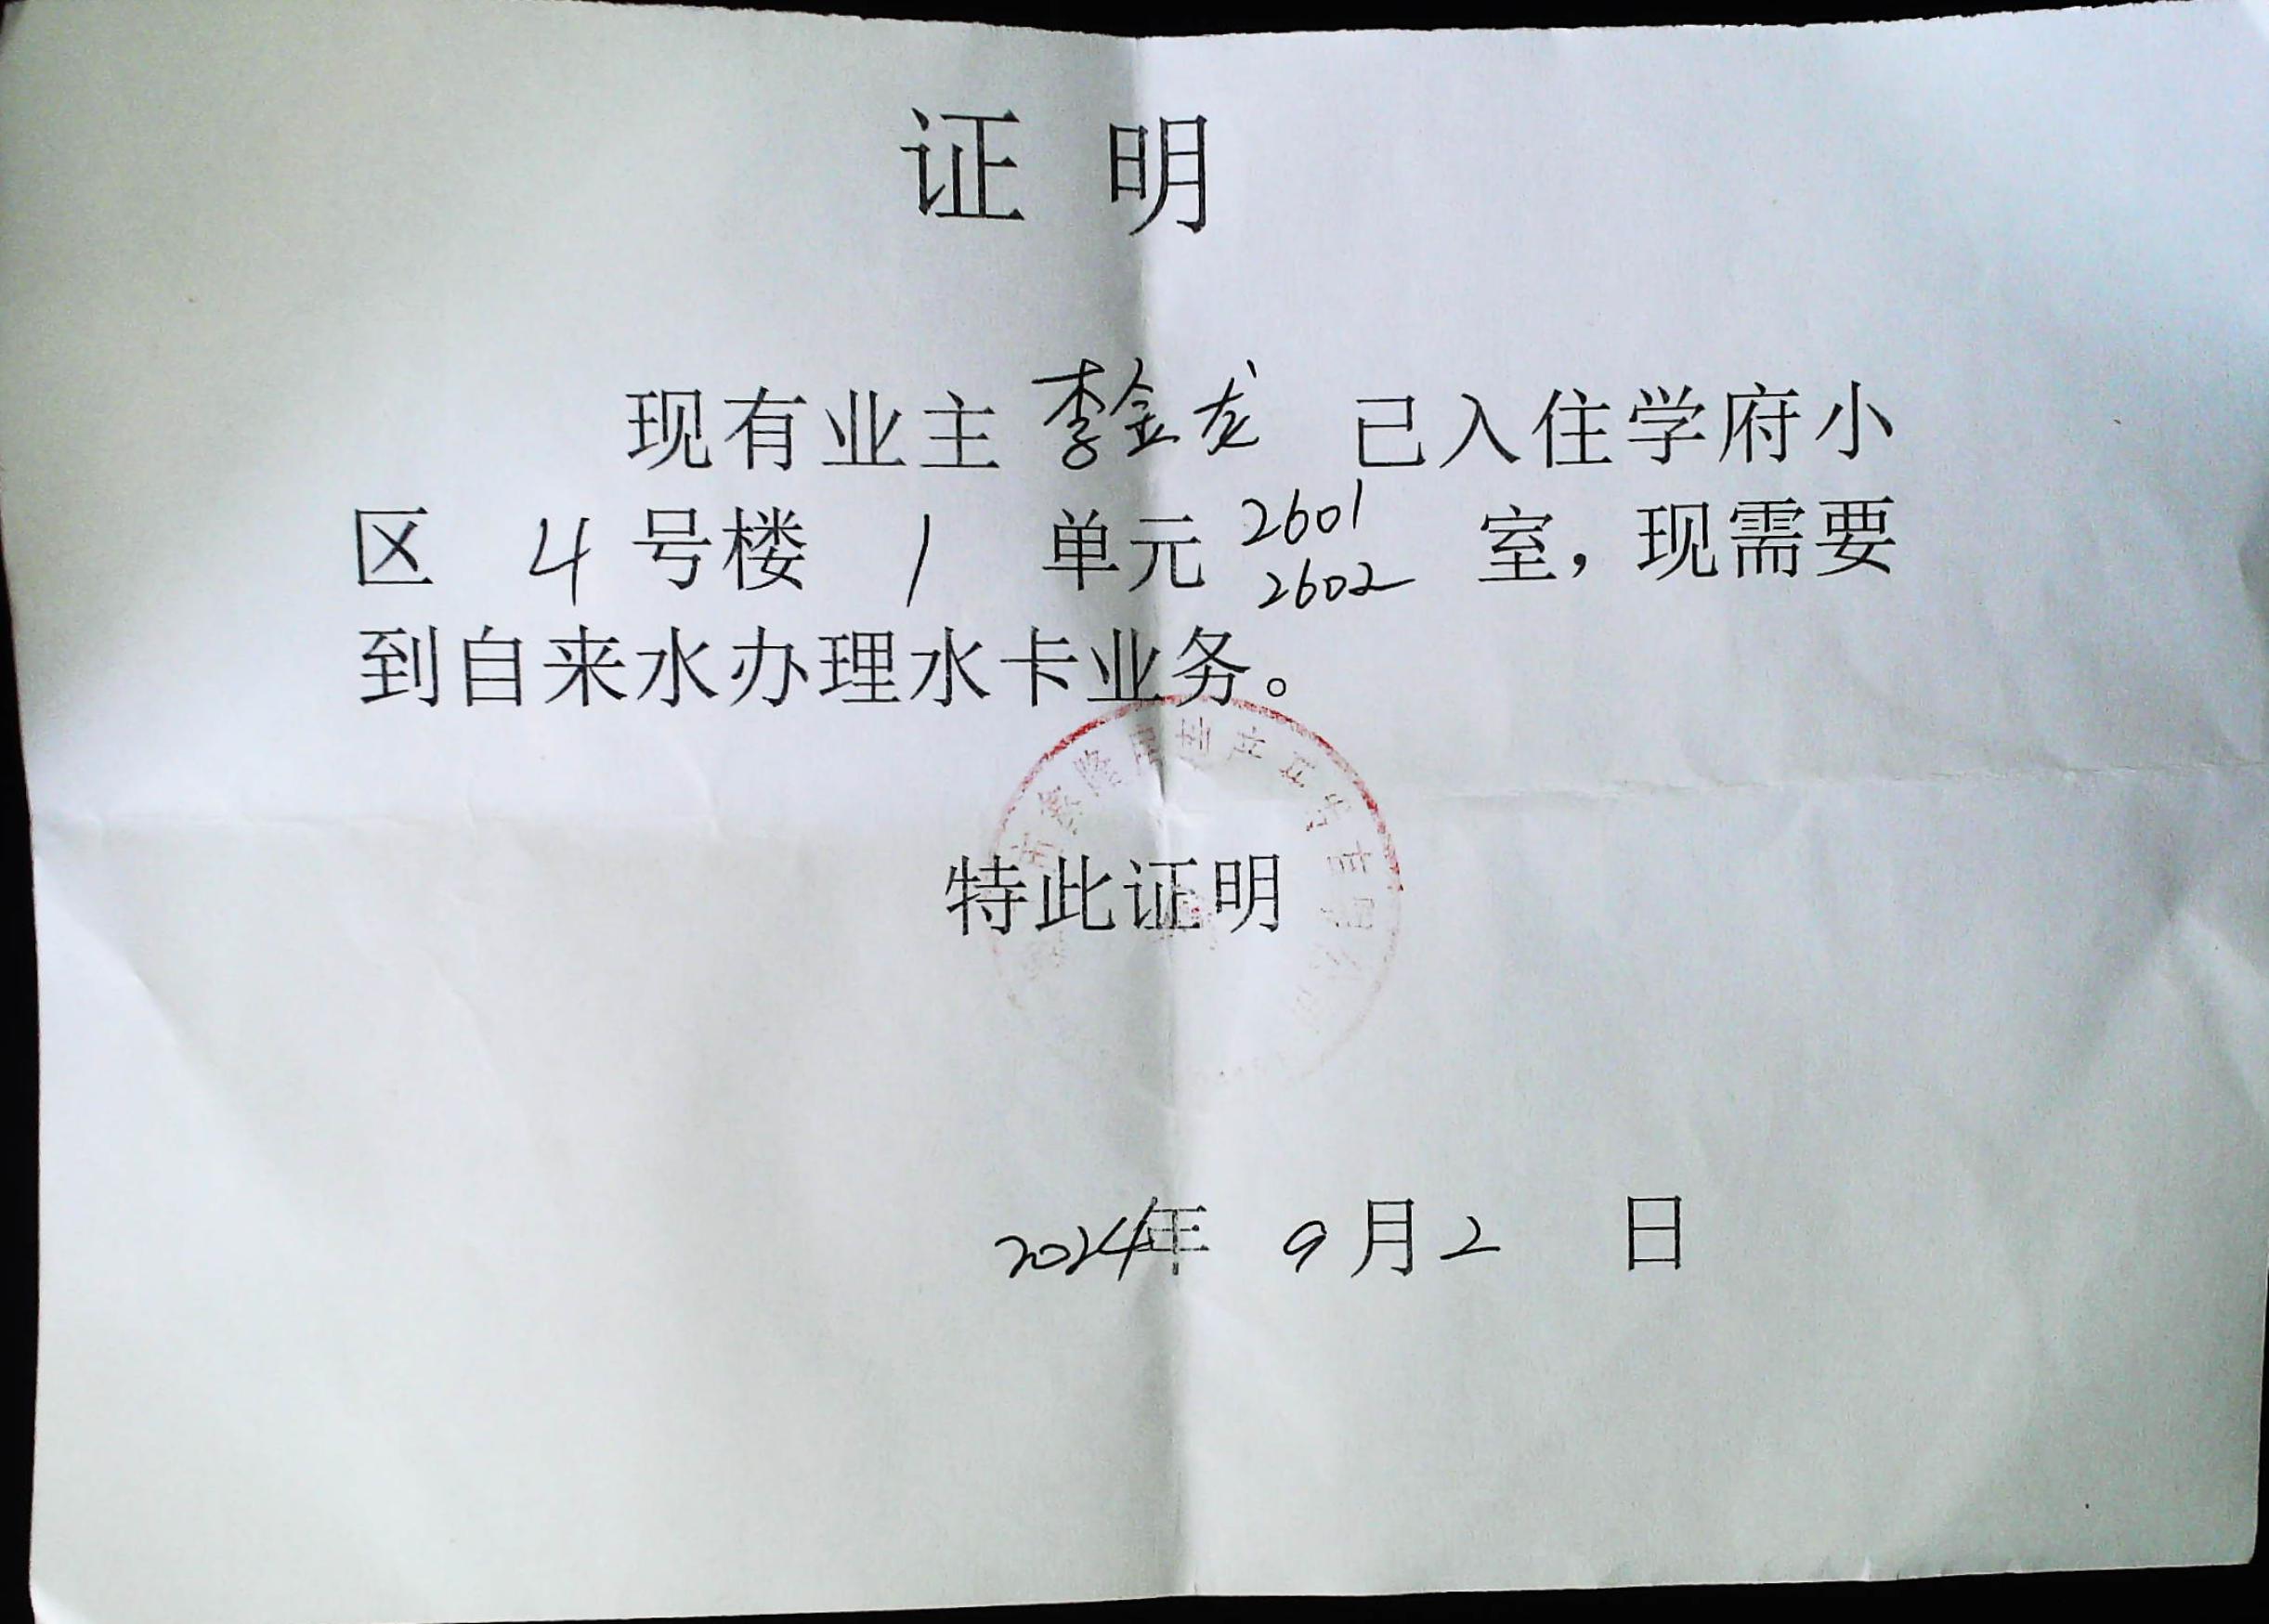 证明
现有业主李金龙已入住学府小
区4号楼1单元2601
2602室，现需要
到自来水办理水卡业务。
特此证明
2024年9月2日